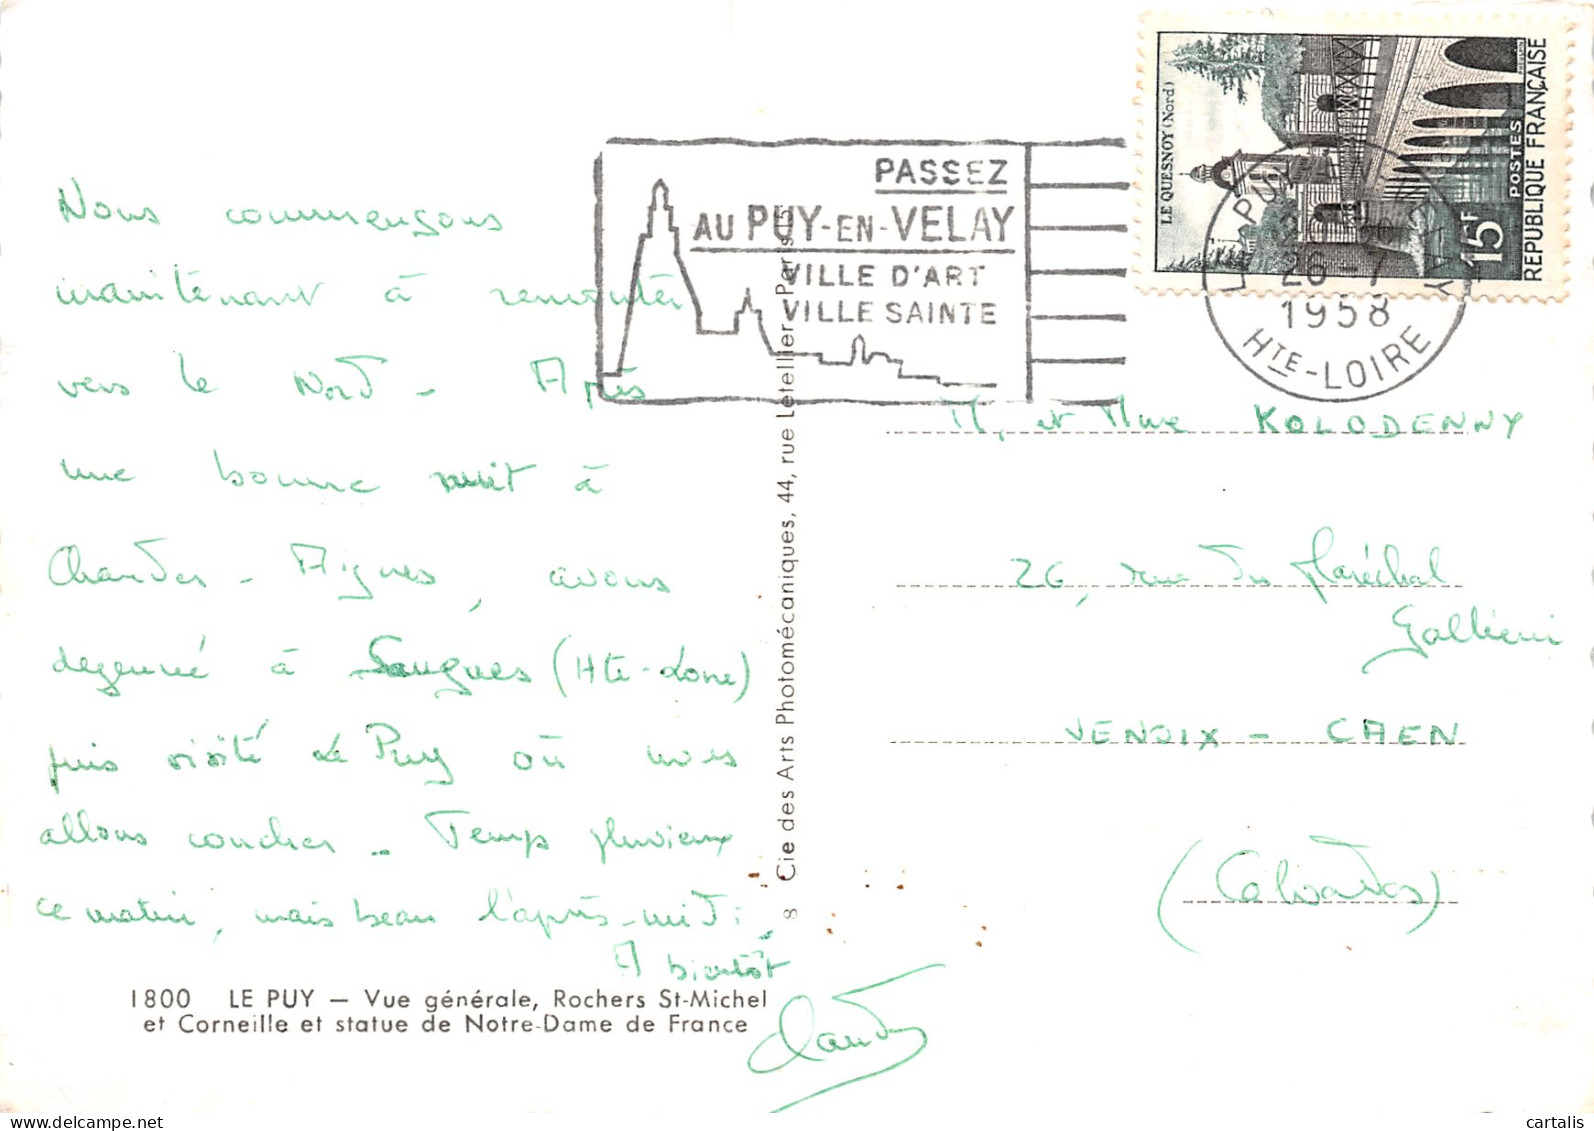 Nous commençons
maintenant à remonter
vers le Nord - Après
une bonne nuit à
Chaudes-Aigues, avons
dejeuné à Saugues (Hte-Loire)
puis visité Le Puy où nous
allons coucher - Temps pluvieux
ce matin, mais beau l'après-midi.
A bientôt
1800 LE PUY — Vue générale, Rochers St-Michel
et Corneille et statue de Notre-Dame de France
8 Cie des Arts Photomécaniques, 44, rue Letellier, Paris 15
PASSEZ
AU PUY-EN-VELAY
VILLE D'ART
VILLE SAINTE
LE QUESNOY (Nord)
POSTES
15F
REPUBLIQUE FRANÇAISE
LE PUY VELAY
1958
HTE-LOIRE
M. et Mme KOLODENNY
26, rue du Maréchal
Gallieni
VENOIX - CAEN
(Calvados)